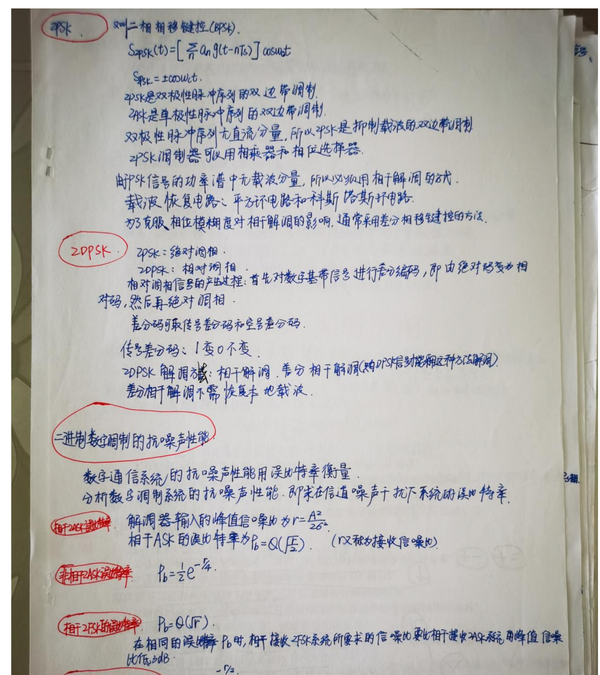 2PSK. 又叫二相相移键控(BPSK).
S2PSK(t)=[∑n an g(t-nTs)] cosω0t
SPSK=±cosωct.
2PSK是双极性脉冲序列的双边带调制
2ASK是单极性脉冲序列的双边带调制.
双极性脉冲序列无直流分量,所以2PSK是抑制载波的双边带调制
2PSK调制器可以用相乘器和相位选择器.
由于PSK信号的功率谱中无载波分量,所以必须用相干解调的方式.
载波恢复电路:平方环电路和科斯塔斯环电路.
为了克服相位模糊度对相干解调的影响,通常采用差分相移键控的方法.
2DPSK. 2PSK:绝对调相.
2DPSK:相对调相.
相对调相信号的产生过程:首先对数字基带信号进行差分编码,即由绝对码变为相
对码,然后再绝对调相.
差分码可取传号差分码和空号差分码.
传号差分码:1变0不变.
2DPSK解调方法:相干解调,差分相干解调(DPSK信号能用这种方法解调)
差分相干解调不需恢复本地载波.
二进制数字调制的抗噪声性能
数字通信系统的抗噪声性能用误比特率衡量.
分析数字调制系统的抗噪声性能.即求在信道噪声干扰下系统的误比特率.
相干2ASK误比特率 解调器输入的峰值信噪比为r=A²/2σ²
相干ASK的误比特率为Pb=Q(√r/2). (r又称为接收信噪比)
非相干2ASK误比特率 Pb=½e^-r/4.
相干2FSK的误比特率 Pb=Q(√r).
在相同的误比特率Pb时,相干接收2FSK系统所要求的信噪比要比相干接收2ASK系统的峰值信噪
比低3dB
-r/2